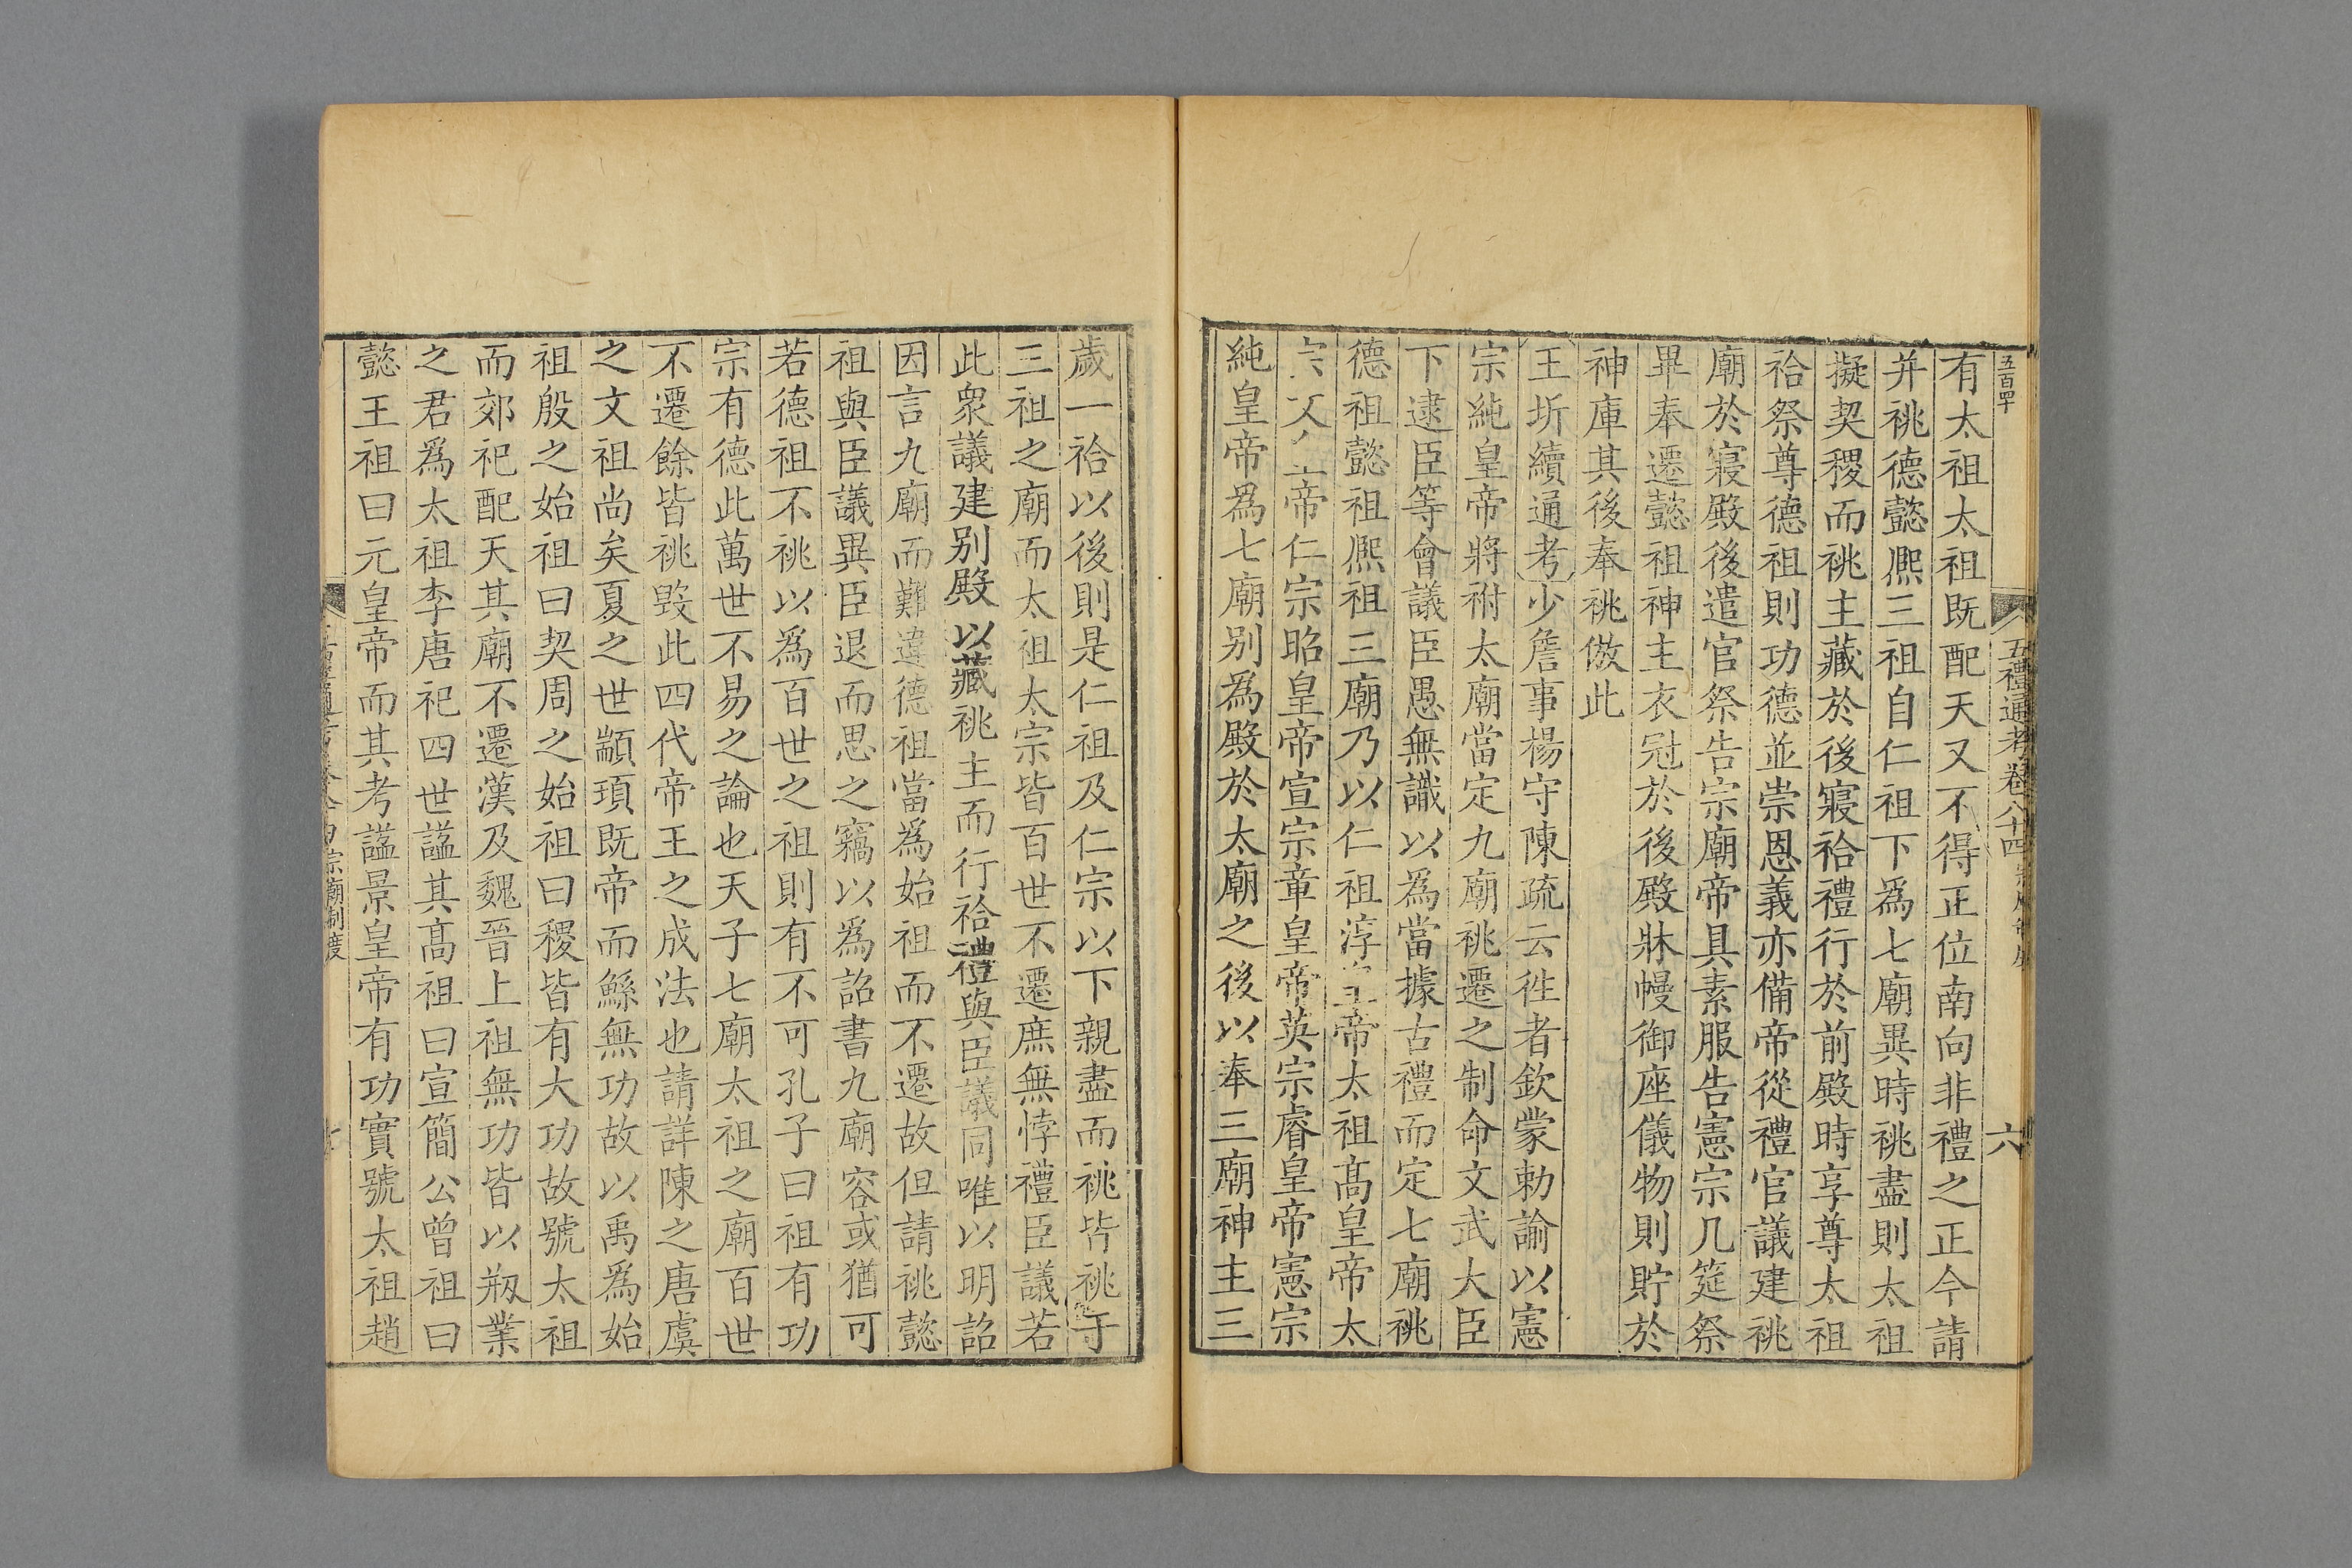 五百四十
五禮通考卷八十四
六
有太祖太祖既配天又不得正位南向非禮之正今請
并祧德懿熈三祖自仁祖下為七廟異時祧盡則太祖
擬契稷而祧主藏於後寢祫禮行於前殿時享尊太祖
祫祭尊德祖則功德並崇恩義亦備帝從禮官議建祧
廟於寢殿後遣官祭告宗廟帝具素服告憲宗几筵祭
畢奉遷懿祖神主衣冠於後殿牀幔御座儀物則貯於
神庫其後奉祧倣此
王圻續通考少詹事楊守陳疏云徃者欽蒙勅諭以憲
宗純皇帝將祔太廟當定九廟祧遷之制命文武大臣
下逮臣等會議臣愚無識以為當據古禮而定七廟祧
德祖懿祖熈祖三廟乃以仁祖淳帝太祖髙皇帝太
帝仁宗昭皇帝宣宗章皇帝英宗睿皇帝憲宗
純皇帝爲七廟别爲殿於太廟之後以奉三廟神主三
歲一祫以後則是仁祖及仁宗以下親盡而祧皆祧于
三祖之廟而太祖太宗皆百世不遷庶無悖禮臣議若
此衆議建别殿以藏祧主而行祫禮與臣議同唯以明詔
因言九廟而難違德祖當爲始祖而不遷故但請祧懿
祖與臣議異臣退而思之竊以爲詔書九廟容或猶可
若德祖不祧以爲百世之祖則有不可孔子曰祖有功
宗有德此萬世不易之論也天子七廟太祖之廟百世
不遷餘皆祧毀此四代帝王之成法也請詳陳之唐虞
之文祖尚矣夏之世顓頊既帝而鯀無功故以禹爲始
祖殷之始祖曰契周之始祖曰稷皆有大功故號太祖
而郊祀配天其廟不遷漢及魏晉上祖無功皆以剏業
之君爲太祖李唐祀四世諡其髙祖曰宣簡公曾祖曰
懿王祖曰元皇帝而其考諡景皇帝有功實號太祖趙
宗廟制度